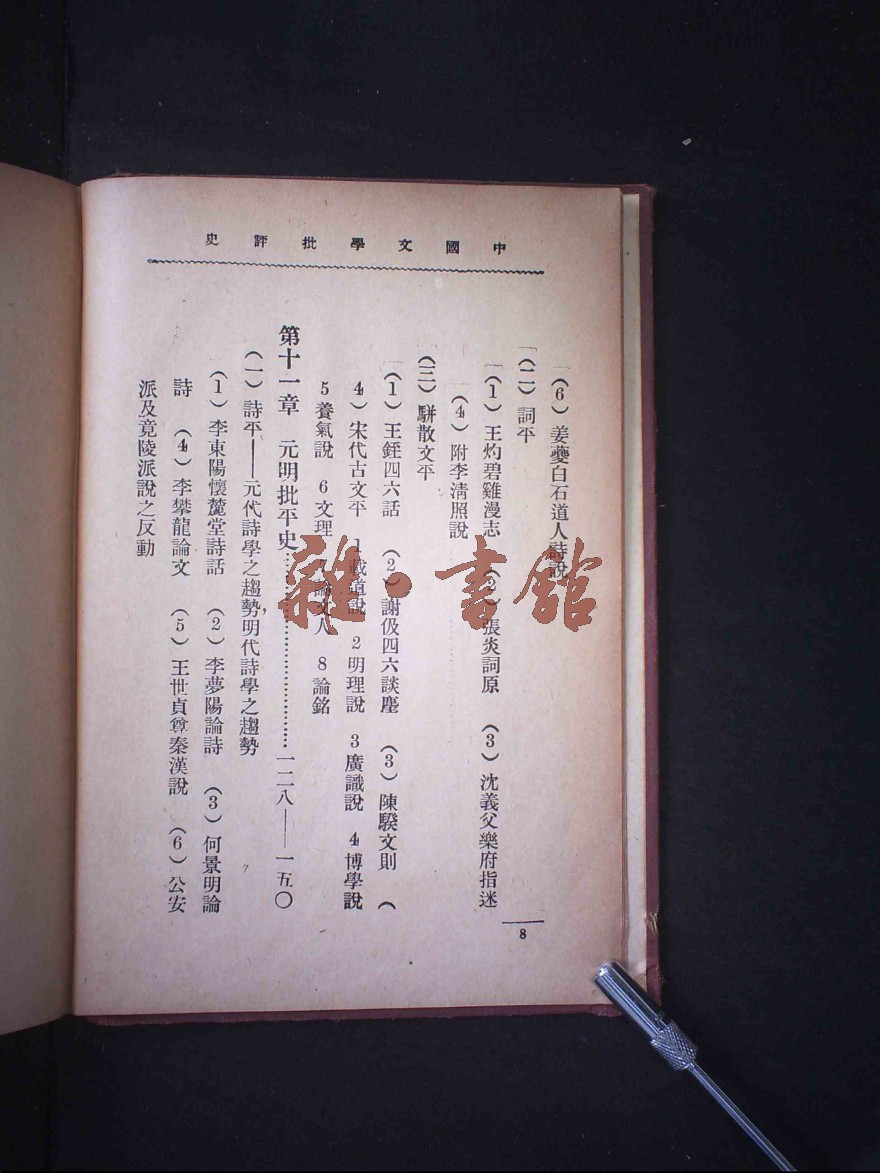 中國文學批評史
(6)姜夔白石道人詩說
(二)詞平
(1)王灼碧雞漫志 (2)張炎詞原 (3)沈義父樂府指迷
(4)附李清照說
(三)駢散文平
(1)王銍四六話 (2)謝伋四六談麈 (3)陳騤文則 (
4)宋代古文平 1載道說 2明理說 3廣識說 4博學說
5養氣說 6文理 7論文人 8論銘
第十一章 元明批平史……………………一二八——一五〇
(一)詩平——元代詩學之趨勢,明代詩學之趨勢
(1)李東陽懷麓堂詩話 (2)李夢陽論詩 (3)何景明論
詩 (4)李攀龍論文 (5)王世貞尊秦漢說 (6)公安
派及竟陵派說之反動
8
雜·書館